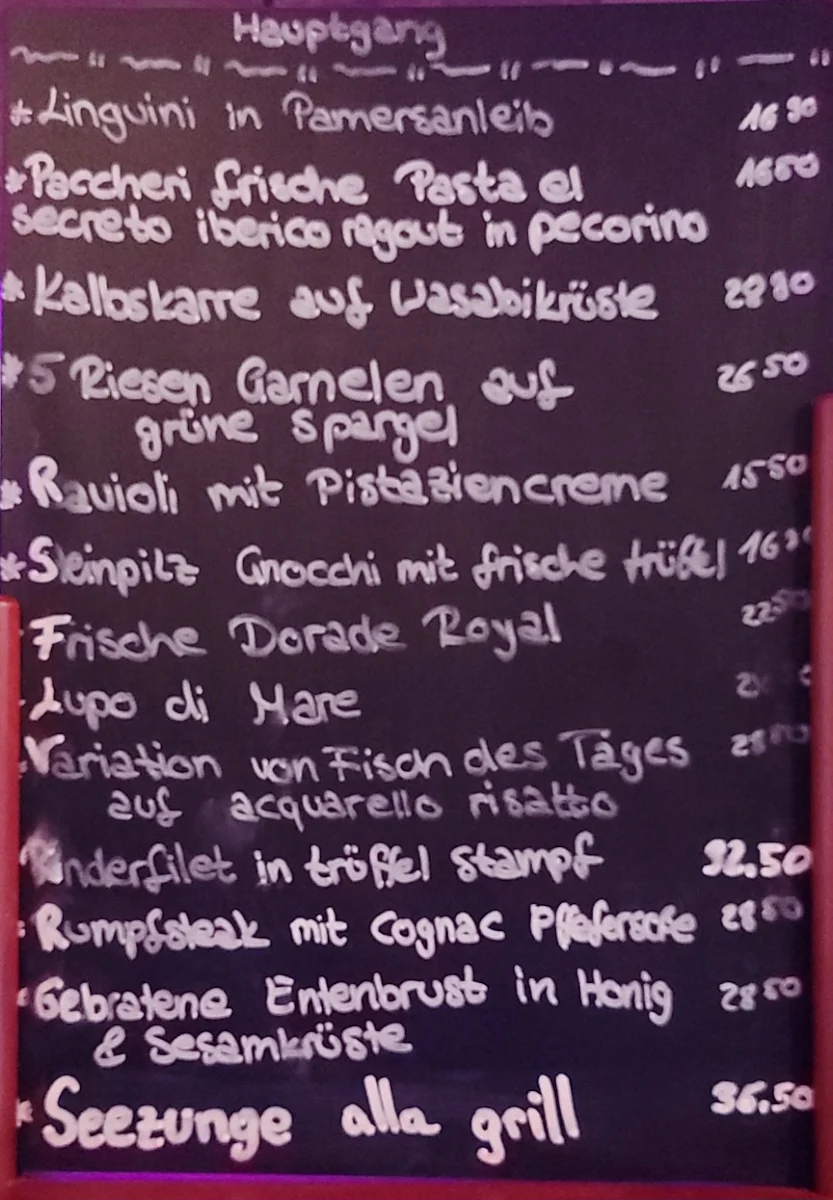 Hauptgang
* Linguini in Pamersanleib 16 90
* Paccheri frische Pasta el 16 50
secreto iberico ragout in pecorino
* Kalbskarre auf Wasabikrüste 28 90
* 5 Riesen Garnelen auf 26 50
grüne Spargel
* Ravioli mit Pistaziencreme 15 50
* Steinpilz Gnocchi mit frische trüffel
Frische Dorade Royal 22 50
Lupo di Mare
Variation von Fisch des Tages
auf acquarello risatto
Rinderfilet in trüffel stampf 32.50
Rumpfsteak mit Cognac 28 50
Gebratene Entenbrust in Honig 28 50
& Sesamkrüste
* Seezunge alla grill 36.50